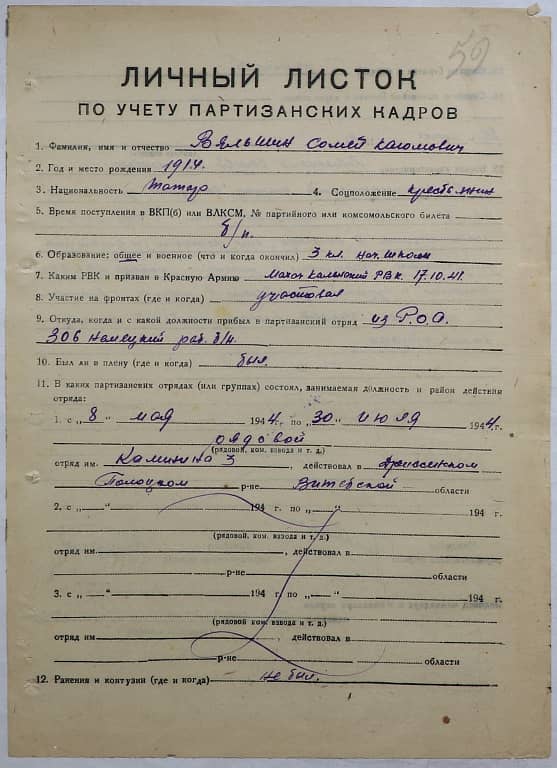 59
ЛИЧНЫЙ ЛИСТОК
ПО УЧЕТУ ПАРТИЗАНСКИХ КАДРОВ
1. Фамилия, имя и отчество Вяльшин Солей Каюмович
2. Год и место рождения 1914.
3. Национальность Татар 4. Соцположение крестьянин
5. Время поступления в ВКП(б) или ВЛКСМ, № партийного или комсомольского билета
б/п.
6. Образование: общее и военное (что и когда окончил) 3 кл. нач. школы
7. Каким РВК и призван в Красную Армию РВК. 17.10.41.
8. Участие на фронтах (где и когда) участвовал
9. Откуда, когда и с какой должности прибыл в партизанский отряд из Р.О.А.
306 немецкий раб. б/н.
10. Был ли в плену (где и когда) был.
11. В каких партизанских отрядах (или группах) состоял, занимаемая должность и район действия
отряда:
1. с „8" мая 1944 г. по „30" июля 1944 г.
рядовой
(рядовой, ком. взвода и т. д.)
отряд им. Калинина 3, действовал в Дриссинском
Полоцком р-не Витебской области
2. с „ — " 194 г. по „ — " 194 г.
(рядовой, ком. взвода и т. д.)
отряд им. , действовал в
р-не области
3. с „ — " 194 г. по „ — " 194 г.
(рядовой, ком. взвода и т. д.)
отряд им. , действовал в
р-не области
12. Ранения и контузии (где и когда) не был.